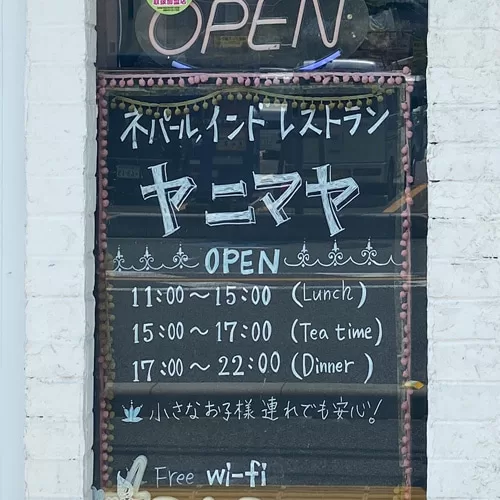 OPEN
ネパール,インド レストラン
ヤニマヤ
OPEN
11:00～15:00 (Lunch)
15:00～17:00 (Tea time)
17:00～22:00 (Dinner)
小さなお子様連れでも安心!
Free wi-fi